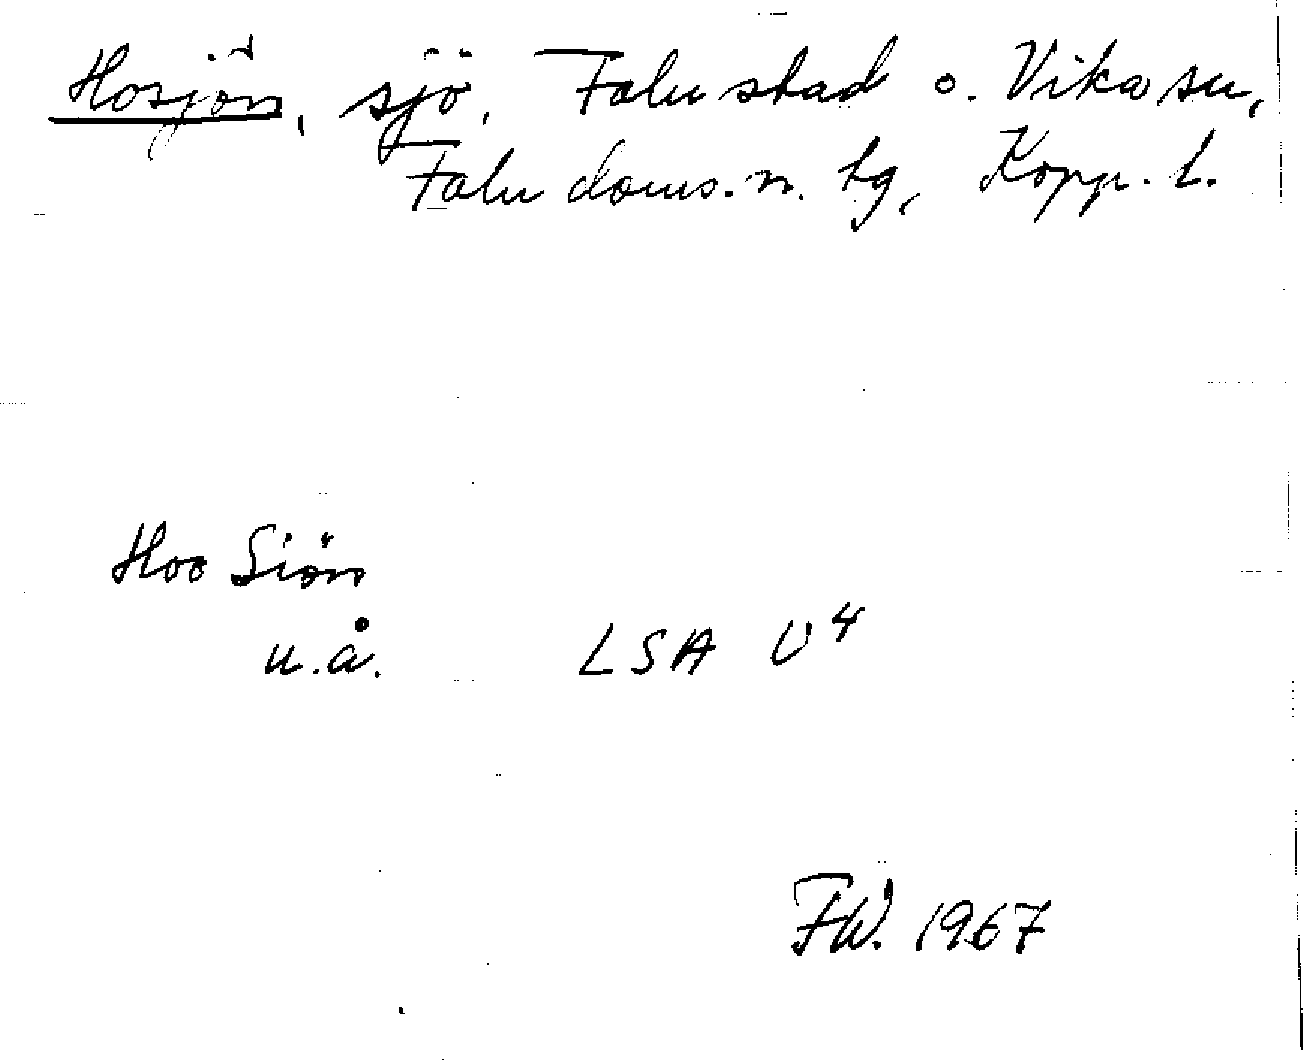 Hosjön, sjö, Falu stad o. Vika sn,
Falu doms. n. tg, Kopp. l.
Hoo Siön
u.å. LSA U4
FW. 1967